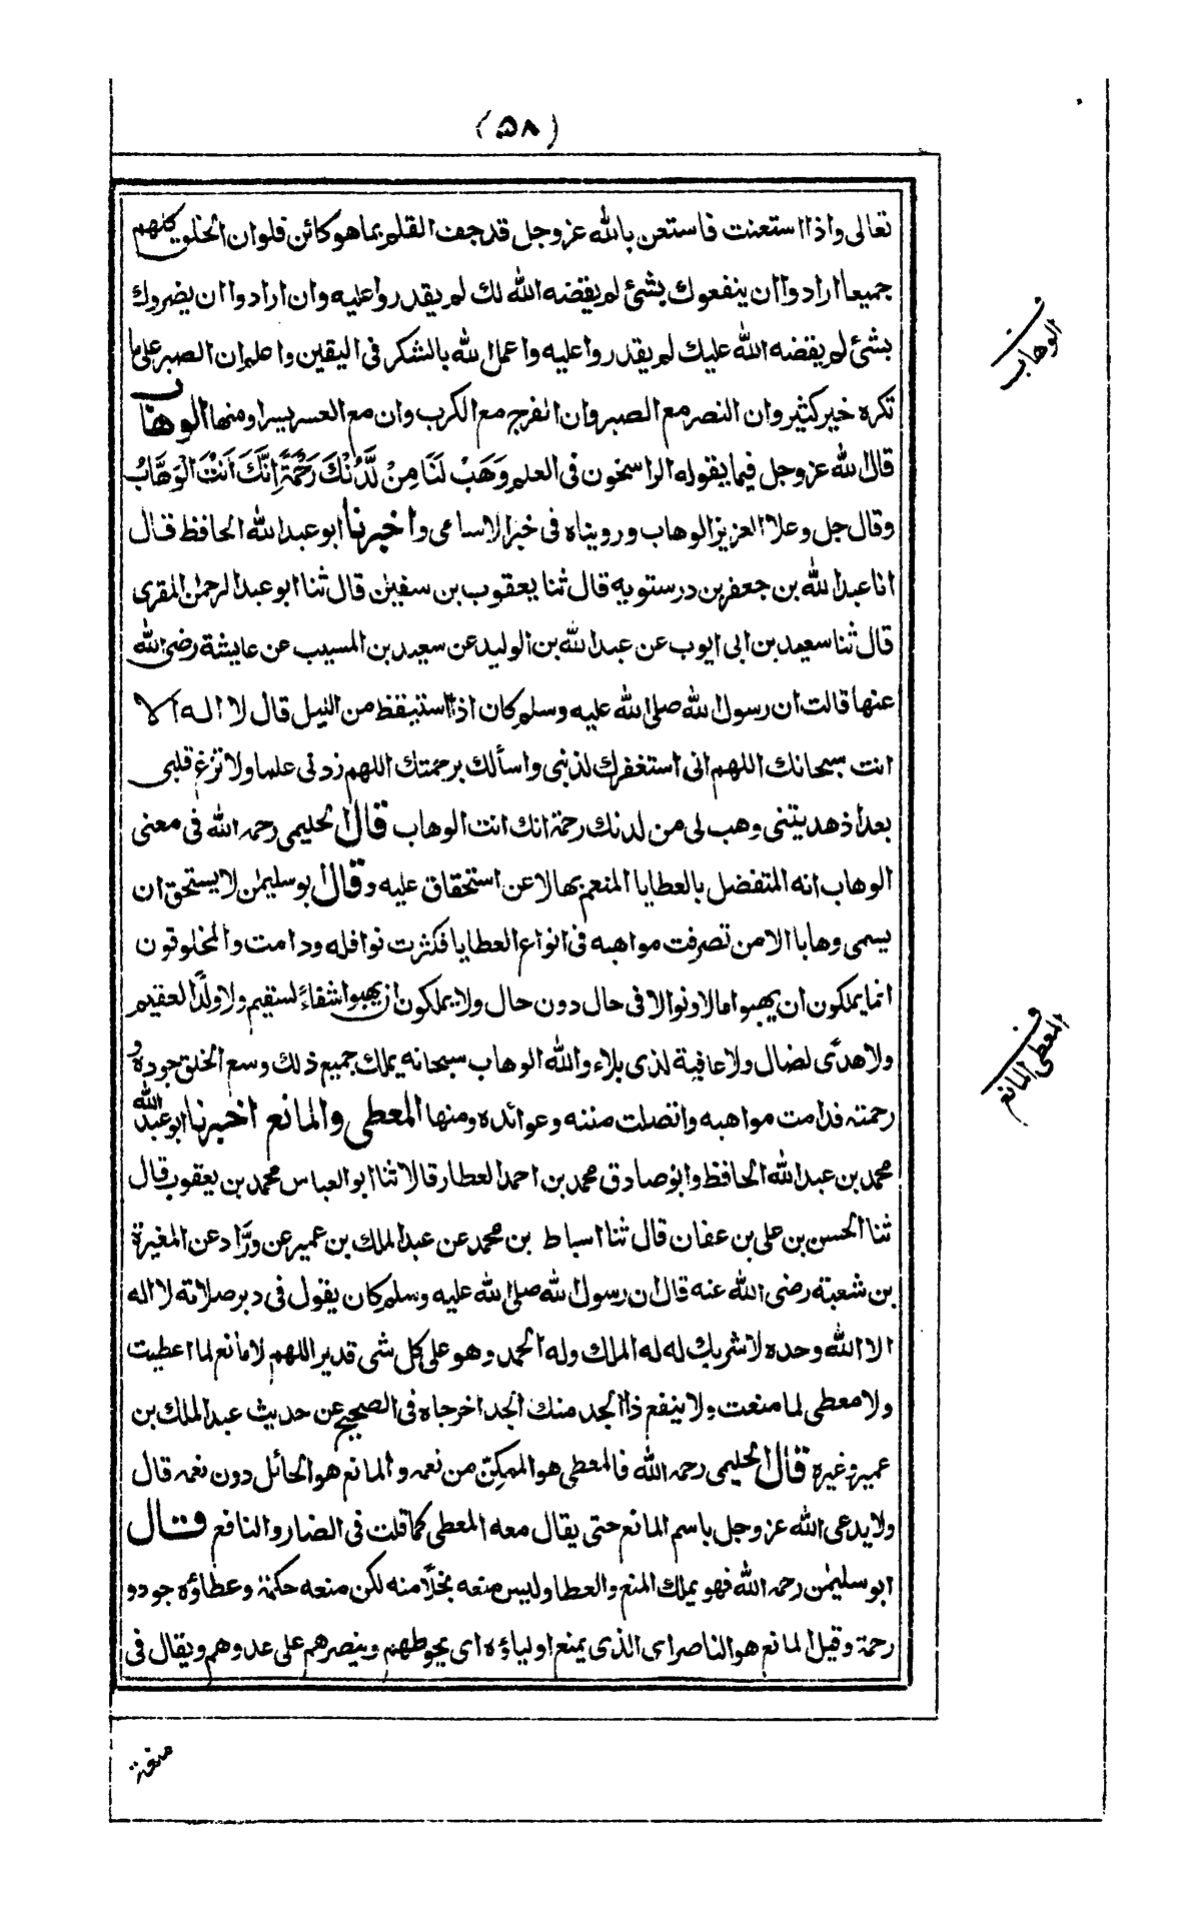 (۵۸)
تعالى واذا استعنت فاستعن بالله عز وجل قد جف القلم بما هو كائن فلو ان الخلق كلهم
جميعا ارادوا ان ينفعوك بشئ لم يقضه الله لك لم يقدروا عليه وان ارادوا ان يضروك
بشئ لم يقضه الله عليك لم يقدروا عليه واعمل لله بالشكر فى اليقين واعلم ان الصبر على ما
تكره خير كثير وان النصر مع الصبر وان الفرج مع الكرب وان مع العسر يسرا ومنها الوهاب
قال الله عز وجل فيما يقوله الراسخون فى العلم وَهَبْ لَنَا مِنْ لَّدُنْكَ رَحْمَةً اِنَّكَ اَنْتَ الْوَهَّابُ
وقال جل وعلا العزيز الوهاب ورويناه فى خبر الاسامى واخبرنا ابو عبد الله الحافظ قال
انا عبد الله بن جعفر بن درستويه قال ثنا يعقوب بن سفيٰن قال ثنا ابو عبد الرحمٰن المقرى
قال ثنا سعيد بن ابى ايوب عن عبد الله بن الوليد عن سعيد بن المسيب عن عايشة رضى الله
عنها قالت ان رسول الله صلى الله عليه وسلم كان اذا استيقظ من الليل قال لا اله الا
انت سبحانك اللهم انى استغفرك لذنبى واسألك برحمتك اللهم زدنى علما ولا تزغ قلبى
بعد اذ هديتنى وهب لى من لدنك رحمة انك انت الوهاب قال الحليمى رحمه الله فى معنى
الوهاب انه المتفضل بالعطايا المنعم بها لا عن استحقاق عليه وقال ابو سليمٰن لا يستحق ان
يسمى وهابا الا من تصرفت مواهبه فى انواع العطايا فكثرت نوافله ودامت والمخلوقون
انما يملكون ان يهبوا مالا ونوالا فى حال دون حال ولا يملكون ان يهبوا شفاءً لسقيم ولا ولدًا لعقيم
ولا هدًى لضال ولا عافية لذى بلاء والله الوهاب سبحانه يملك جميع ذلك وسع الخلق جوده و
رحمته فدامت مواهبه واتصلت مننه وعوائده ومنها المعطى والمانع اخبرنا ابو عبد الله
محمد بن عبد الله الحافظ وابو صادق محمد بن احمد العطار قالا ثنا ابو العباس محمد بن يعقوب قال
ثنا الحسن بن على بن عفان قال ثنا اسباط بن محمد عن عبد الملك بن عمير عن ورَّاد عن المغيرة
بن شعبة رضى الله عنه قال ان رسول الله صلى الله عليه وسلم كان يقول فى دبر صلاته لا اله
الا الله وحده لا شريك له له الملك وله الحمد وهو على كل شى قدير اللهم لا مانع لما اعطيت
ولا معطى لما منعت ولا ينفع ذا الجد منك الجد اخرجاه فى الصحيح عن حديث عبد الملك بن
عمير وغيره قال الحليمى رحمه الله فالمعطى هو الممكِّن من نعمه والمانع هو الحائل دون نعمه قال
ولا يدعى الله عز وجل باسم المانع حتى يقال معه المعطى كما قلت فى الضار والنافع قال
ابو سليمٰن رحمه الله فهو يملك المنع والعطا وليس منعه بخلًا منه لكن منعه حكمة وعطاؤه جود و
رحمة وقيل المانع هو الناصر اى الذى يمنع اولياءه اى يحوطهم وينصرهم على عدوهم ويقال فى
الوهاب
المعطى المانع
منعة